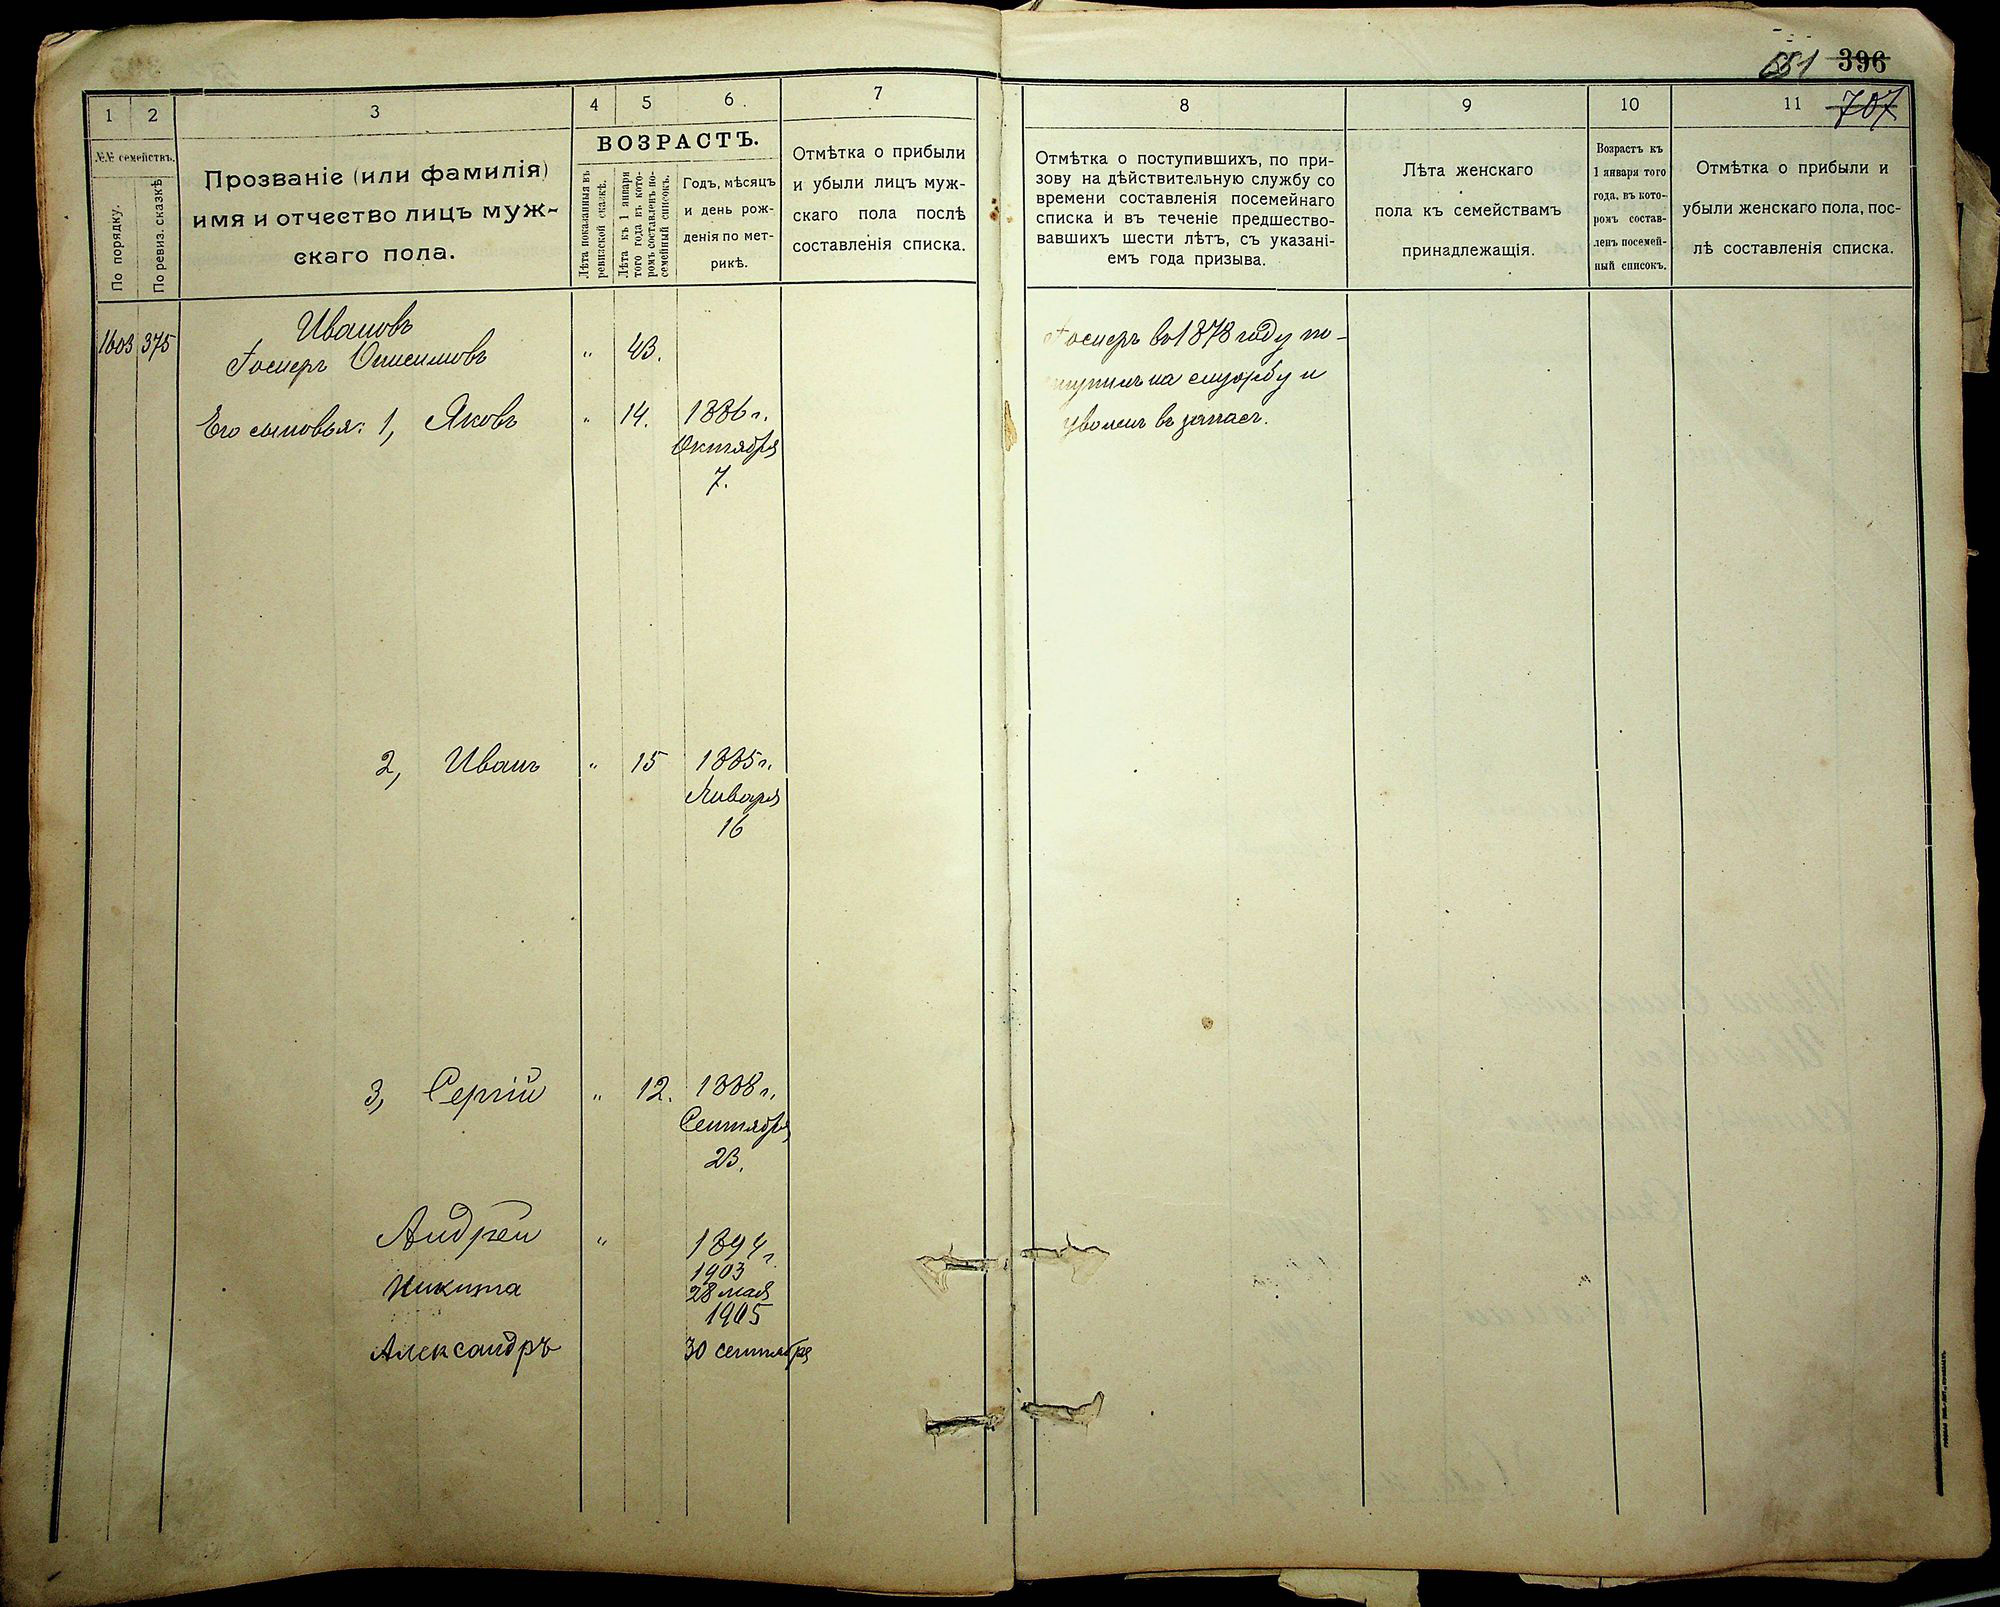 651 396
707
1
2
3
4
5
6
7
8
9
10
11
№№ семействъ.
По порядку.
По ревиз. сказкѣ
Прозваніе (или фамилія)
имя и отчество лицъ муж-
скаго пола.
ВОЗРАСТЪ.
Лѣта показанныя въ
ревизской сказкѣ.
Лѣта къ 1 января
того года въ кото-
ромъ составленъ по-
семейный списокъ.
Годъ, мѣсяцъ
и день рож-
денія по мет-
рикѣ.
Отмѣтка о прибыли
и убыли лицъ муж-
скаго пола послѣ
составленія списка.
Отмѣтка о поступившихъ, по при-
зову на дѣйствительную службу со
времени составленія посемейнаго
списка и въ теченіе предшество-
вавшихъ шести лѣтъ, съ указані-
емъ года призыва.
Лѣта женскаго
пола къ семействамъ
принадлежащія.
Возрастъ къ
1 января того
года, въ кото-
ромъ состав-
ленъ посемей-
ный списокъ.
Отмѣтка о прибыли и
убыли женскаго пола, пос-
лѣ составленія списка.
Ивановъ
1603 375 Госмеръ Онисимовъ " 43.
Его сыновья: 1, Яковъ " 14. 1886 г.
Октября
7.
Госмеръ въ 1878 году по-
ступилъ на службу и
уволенъ въ запасъ.
2, Иванъ " 15 1885 г.
Января
16
3, Сергій " 12. 1888 г.
Сентября
23.
Андрей " 1894 г.
Никита 1903
28 мая
1905
Александръ 30 сентября